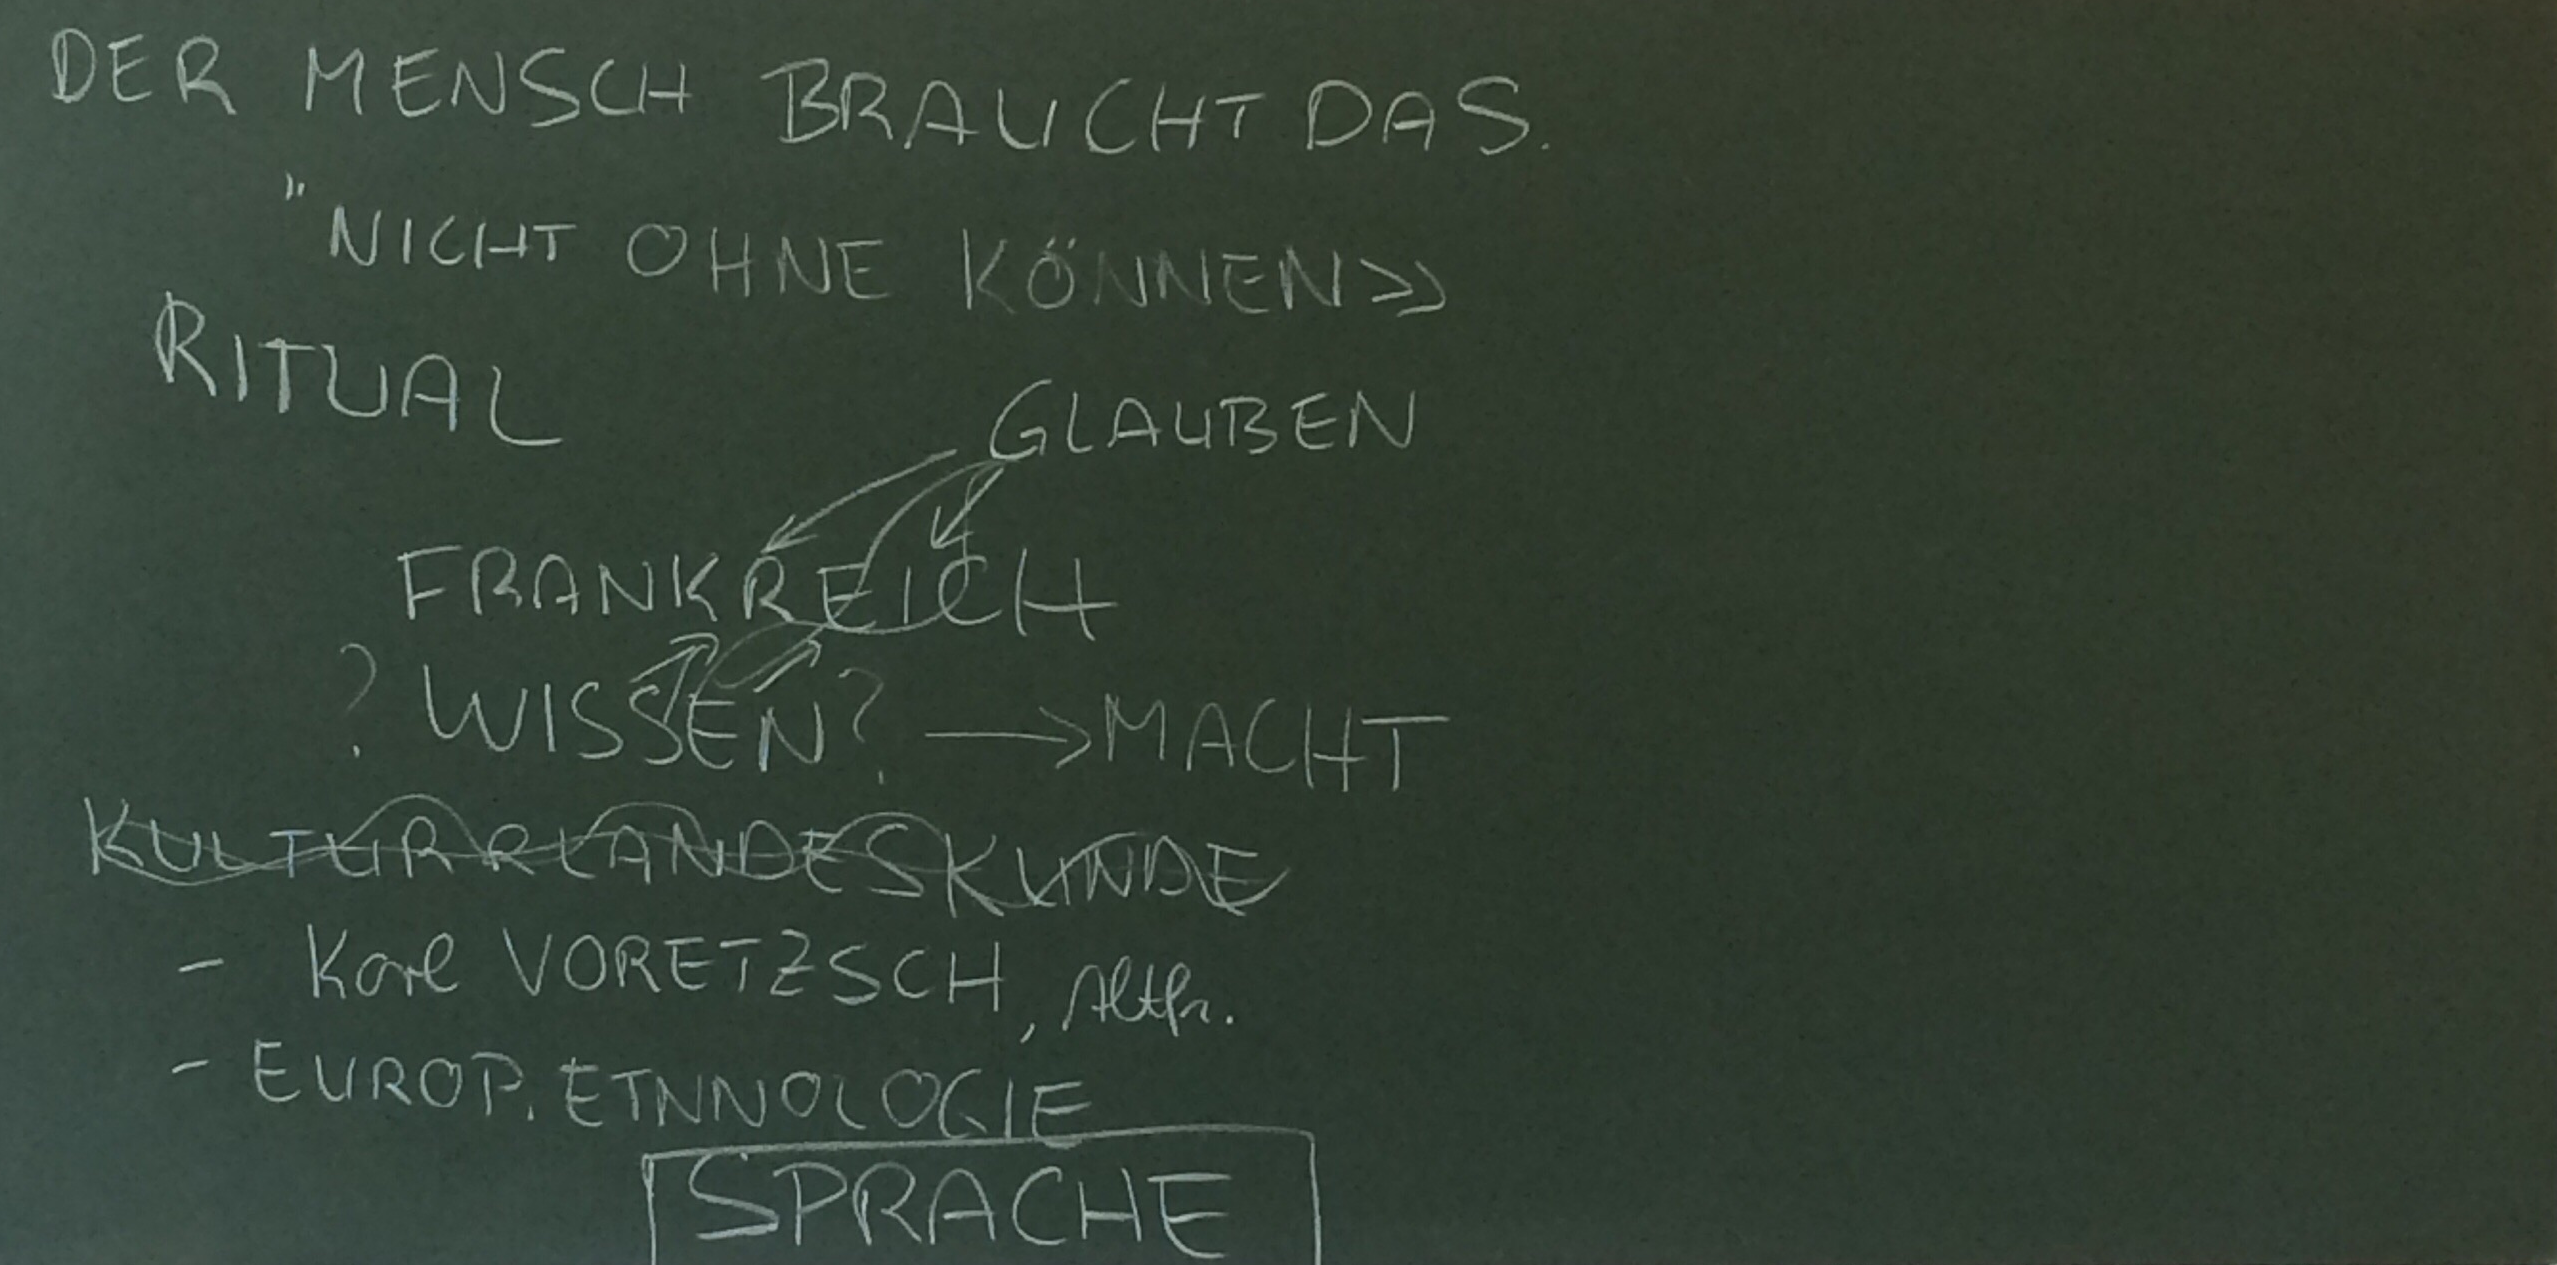 DER MENSCH BRAUCHT DAS.
"NICHT OHNE KÖNNEN»
RITUAL
GLAUBEN
FRANKREICH
? WISSEN? → MACHT
KULTURRLANDESKUNDE
- Karl VORETZSCH, Altfr.
- EUROP. ETNNOLOGIE
SPRACHE